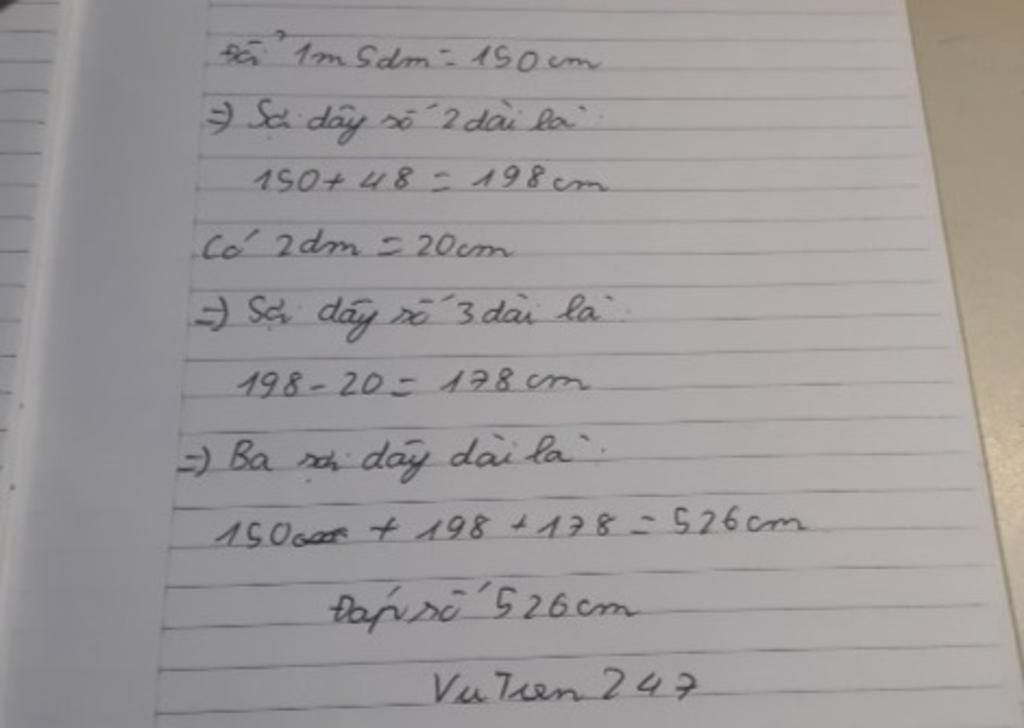 Đổi 1m5dm = 150cm
=) Sợi dây số 2 dài là:
150 + 48 = 198cm
Có 2dm = 20cm
=) Sợi dây số 3 dài là:
198 - 20 = 178cm
=) Ba sợi dây dài là:
150 + 198 + 178 = 526cm
Đáp số 526cm
VuTien 247